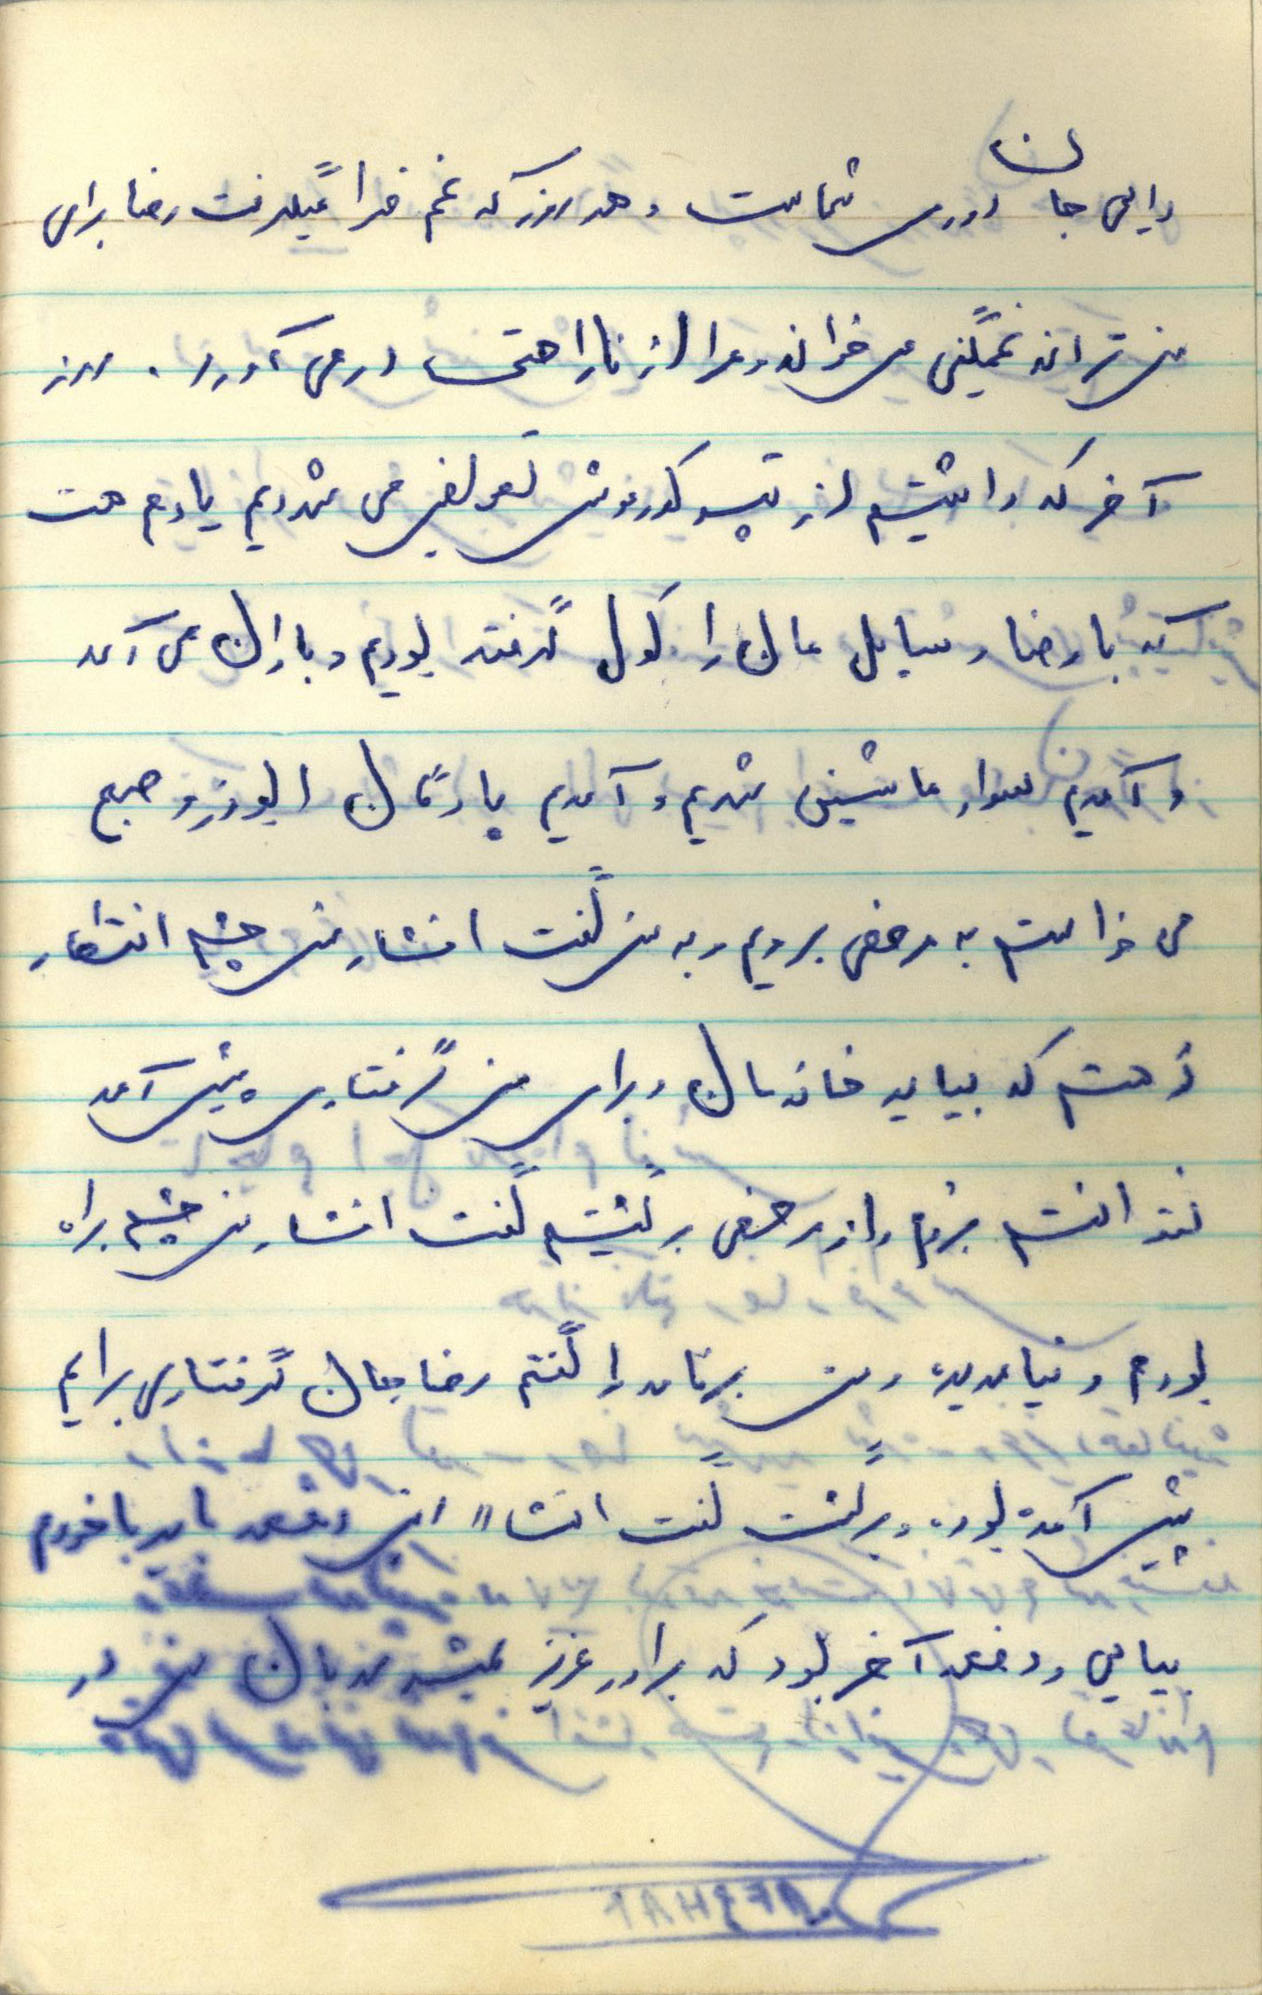 دایی جان دوری شماست و هر روز که غم فرا میگرفت رضا برای
من ترانه غمگینی می خواند و مرا از ناراحتی در می آورد. روز
آخر که داشتیم از تیپ کوروش تعویض می شدیم یادم هست
که با رضا وسایل مان را کول گرفته بودیم و باران می آمد
و آمدیم سوار ماشین شدیم و آمدیم پادگان ابوذر و صبح
می خواستم به مرخصی برویم و به من گفت افشار من چشم انتظار
هستم که بیاید خانه مان و برای من گرفتاری پیش آمد
نتوانستم بروم و از مرخصی برگشتیم گفت افشار من چشم براه
بودم و نیامدید، و من برنامه را گفتم رضا جان گرفتاری برایم
پیش آمده بود. و برگشت گفت افشار این دفعه باید با خودم
بیایی و دفعه آخر بود که برادر عزیز همیشه مهربان من در
AFSHAR